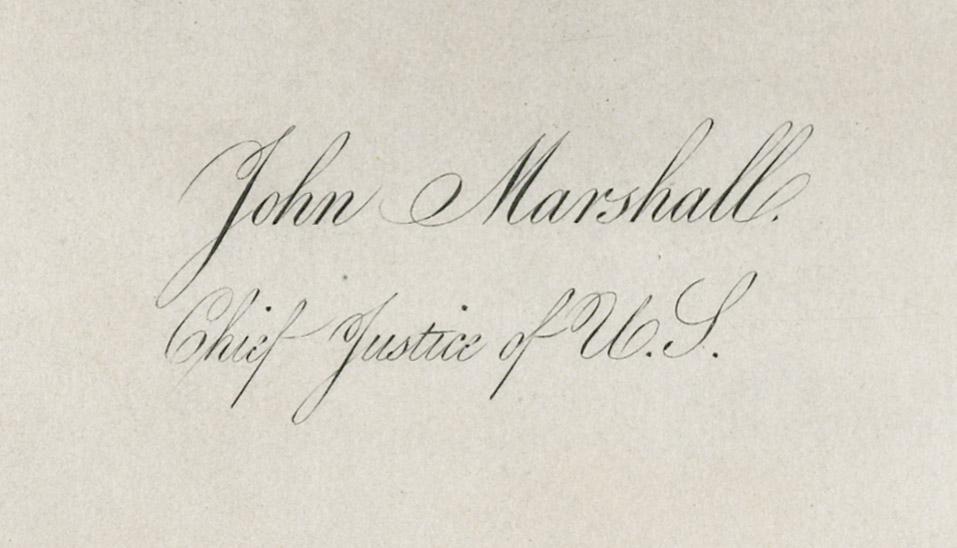 John Marshall.
Chief Justice of U.S.